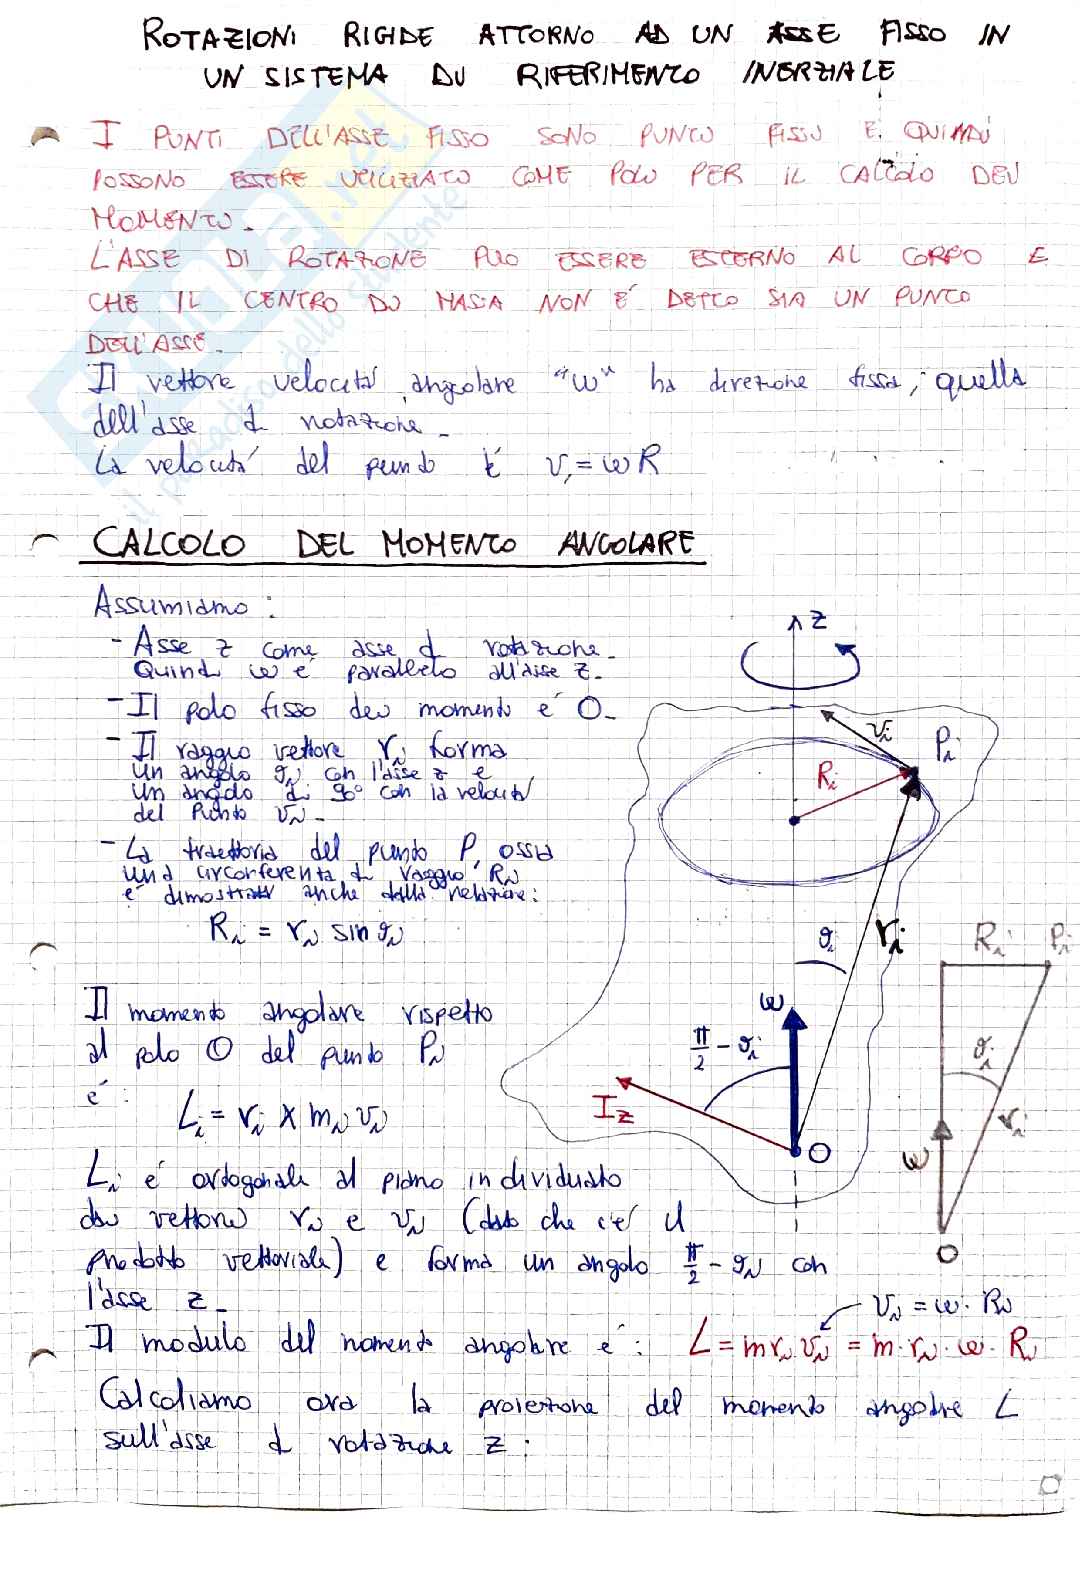 ROTAZIONI RIGIDE ATTORNO AD UN ASSE FISSO IN
UN SISTEMA DI RIFERIMENTO INERZIALE
I PUNTI DELL'ASSE FISSO SONO PUNTI FISSI E QUINDI
POSSONO ESSERE UTILIZZATO COME POLO PER IL CALCOLO DEL
MOMENTO.
L'ASSE DI ROTAZIONE PUO ESSERE ESTERNO AL CORPO E
CHE IL CENTRO DI MASSA NON É DETTO SIA UN PUNTO
DELL'ASSE.
Il vettore velocità angolare "ω" ha direzione fissa, quella
dell'asse di rotazione.
La velocità del punto é vᵢ = ω R
CALCOLO DEL MOMENTO ANGOLARE
Assumiamo:
- Asse z come asse di rotazione.
Quindi ω é parallelo all'asse z.
- Il polo fisso del momento é O.
- Il raggio vettore rᵢ forma
un angolo θᵢ con l'asse z e
un angolo di 90° con la velocità
del Punto vᵢ.
- La traiettoria del punto P, ossia
una circonferenza di raggio Rᵢ
é dimostrata anche dalla relazione:
Rᵢ = rᵢ sin θᵢ
Il momento angolare rispetto
al polo O del punto Pᵢ
é:
Lᵢ = rᵢ x mᵢ vᵢ
Lᵢ é ortogonale al piano individuato
dai vettori rᵢ e vᵢ (dato che c'é il
prodotto vettoriale) e forma un angolo π/2 - θᵢ con
l'asse z.
vᵢ = ω · Rᵢ
Il modulo del momento angolare é: L = m rᵢ vᵢ = m · rᵢ · ω · Rᵢ
Calcoliamo ora la proiezione del momento angolare L
sull'asse di rotazione z:
z
vᵢ
Pᵢ
Rᵢ
θᵢ
rᵢ
ω
π/2 - θᵢ
Iz
O
Rᵢ
Pᵢ
θᵢ
rᵢ
ω
O
il paradiso dello studente